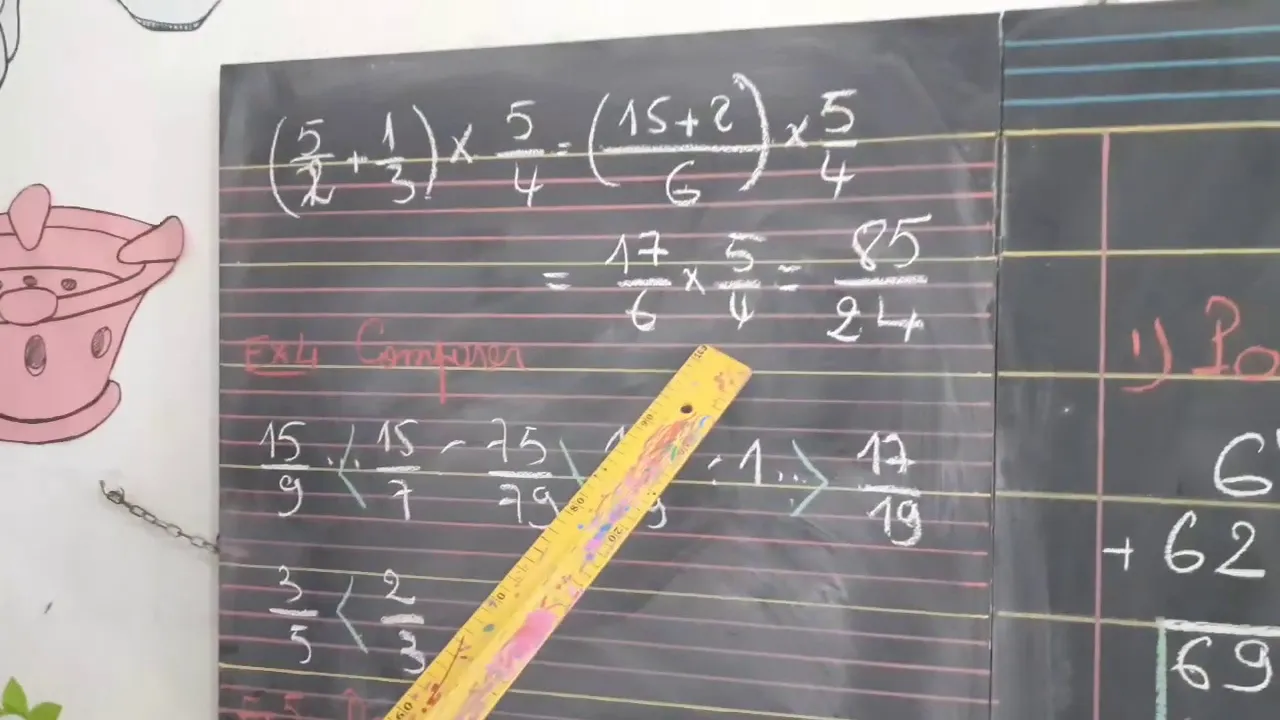 (5/2 + 1/3) × 5/4 = (15+2/6) × 5/4
= 17/6 × 5/4 = 85/24
Ex4 Comparer
15/9 ..<.. 15/7 - 75/79 > 1 ..>.. 17/19
3/5 < 2/3
1)
6
+ 62
69